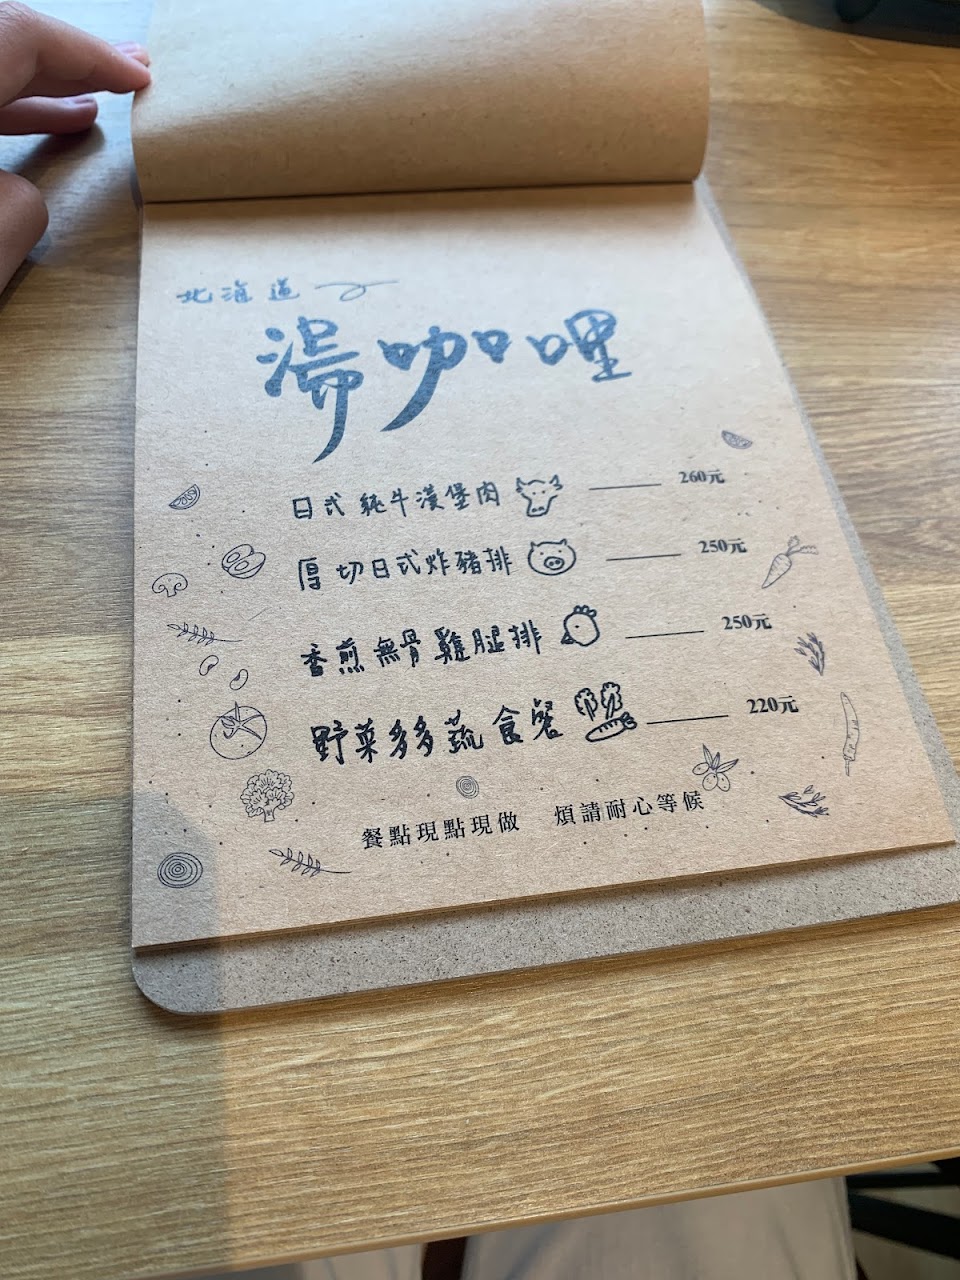 北海道
湯咖哩
日式純牛漢堡肉 260元
厚切日式炸豬排 250元
香煎無骨雞腿排 250元
野菜多多蔬食餐 220元
餐點現點現做 煩請耐心等候